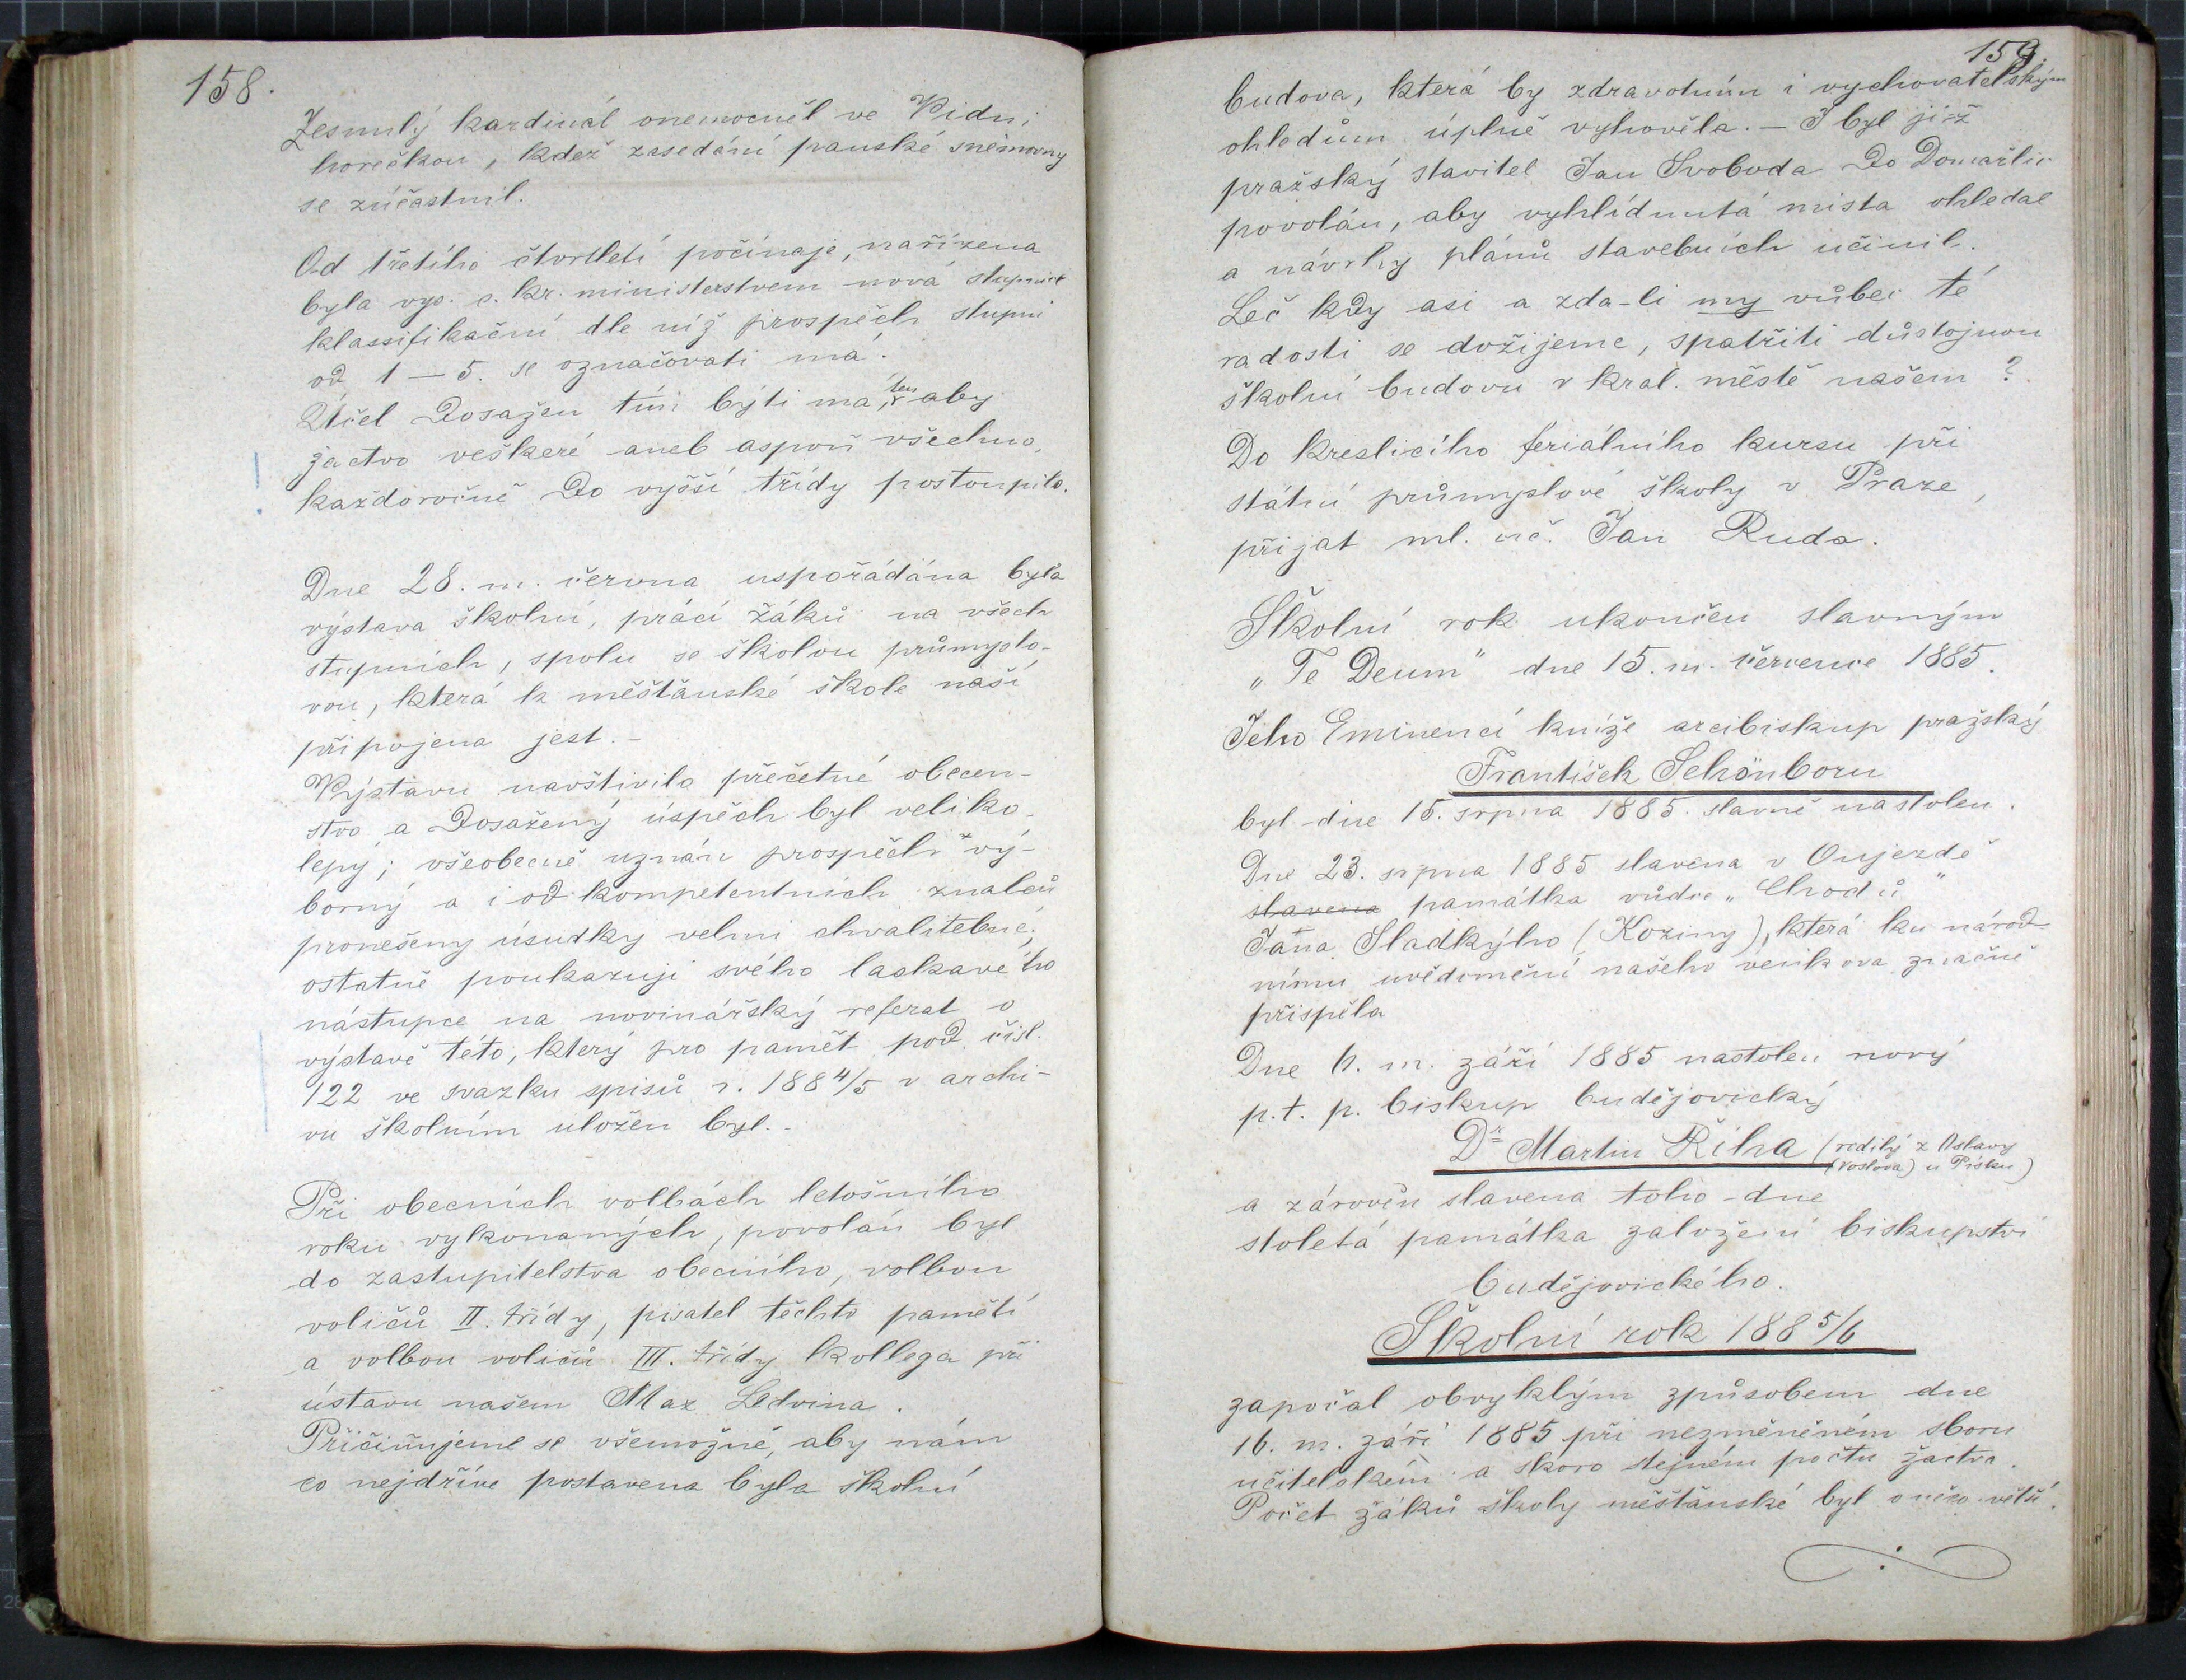 158.
Zesnulý kardinál onemocněl ve Vídni
horečkou, kdež zasedání panské sněmovny
se zúčastnil.
Od třetího čtvrtletí počínaje, nařízena
byla vys. c. kr. ministerstvem nová stupnice
klassifikační dle níž prospěch stupni
od 1 – 5. se označovati má.
Účel dosažen tím býti má, ten aby
žactvo veškeré aneb aspoň všechno
každoročně do vyšší třídy postoupilo.
Dne 28. m. června uspořádána byla
výstava školní, prací žáků na všech
stupních, spolu se školou průmyslo-
vou, která k měšťanské škole naší
připojena jest. –
Výstavu navštívilo přečetné obecen-
stvo a dosažený úspěch byl veliko-
lepý; všeobecně uznán prospěch vý-
borný a i od kompetentních znalců
pronešeny úsudky velmi chvalitebné;
ostatně poukazuji svého laskavého
nástupce na novinářský referat o
výstavě této, který pro paměť pod čísl.
122 ve svazku spisů r. 1884/5 v archi-
vu školním uložen byl. –
Při obecních volbách letošního
roku vykonaných, povolán byl
do zastupitelstva obecního, volbou
voličů II. třídy, pisatel těchto pamětí
a volbou voličů III. třídy kollega při
ústavu našem Max Ledvina.
Přičiňujeme se všemožně, aby nám
co nejdříve postavena byla školní
159.
budova, která by zdravotním i vychovatelským
ohledům úplně vyhověla. – I byl již
pražský stavitel Jan Svoboda do Domažlic
povolán, aby vyhlídnutá místa ohledal
a návrhy plánů stavebních učinil.
Leč kdy asi a zda-li my vůbec té
radosti se dožijeme, spatřiti důstojnou
školní budovu v král. městě našem?
Do kreslicího feriálního kursu při
státní průmyslové školy v Praze,
přijat ml. uč. Jan Ruda.
Školní rok ukončen slavným
„Te Deum" dne 15. m. července 1885.
Jeho Eminencí kníže arcibiskup pražský
František Schönborn
byl dne 15. srpna 1885. slavně nastolen.
Dne 23. srpna 1885 slavena v Oujezdě
slavena památka vůdce „Chodů"
Jana Sladkýho (Koziny), která ku národ-
nímu uvědomění našeho venkova značně
přispěla
Dne 6. m. září 1885 nastolen nový
p. t. p. biskup budějovický
Dr Martin Říha (rodilý z Oslavy
(Voslova) u Písku)
a zároveň slavena toho-dne
stoletá památka založení biskupství
budějovického.
Školní rok 1885/6
započal obvyklým způsobem dne
16. m. září 1885 při nezměněném sboru
učitelském a skoro stejném počtu žactva.
Počet žáků školy měšťanské byl o něco větší.